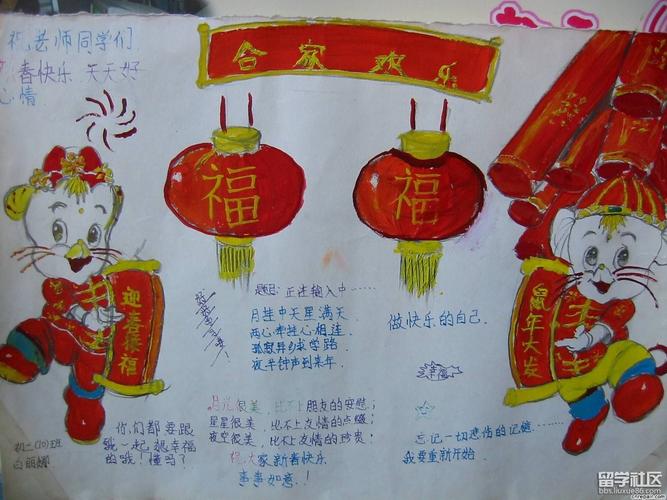 祝老师同学们
春快乐 天天好
心情
合家欢乐
福
福
迎春接福
鼠年大发
题记:正在输入中……
月挂中天星满天
两心牵挂心相连
孤寂异乡求学路
夜半钟声到来年
做快乐的自己.
幸福
月光很美,比不上朋友的安慰;
星星很美,比不上友情的点缀;
夜空很美,比不上友情的珍贵;
祝大家新春快乐
事事如意!
你们都要跟
我一起,想幸福
的哦!懂吗?
初二(10)班
白丽娜
哈
忘记一切悲伤的记忆……
我要重新开始.
留学社区
bbs.liuxue86.com